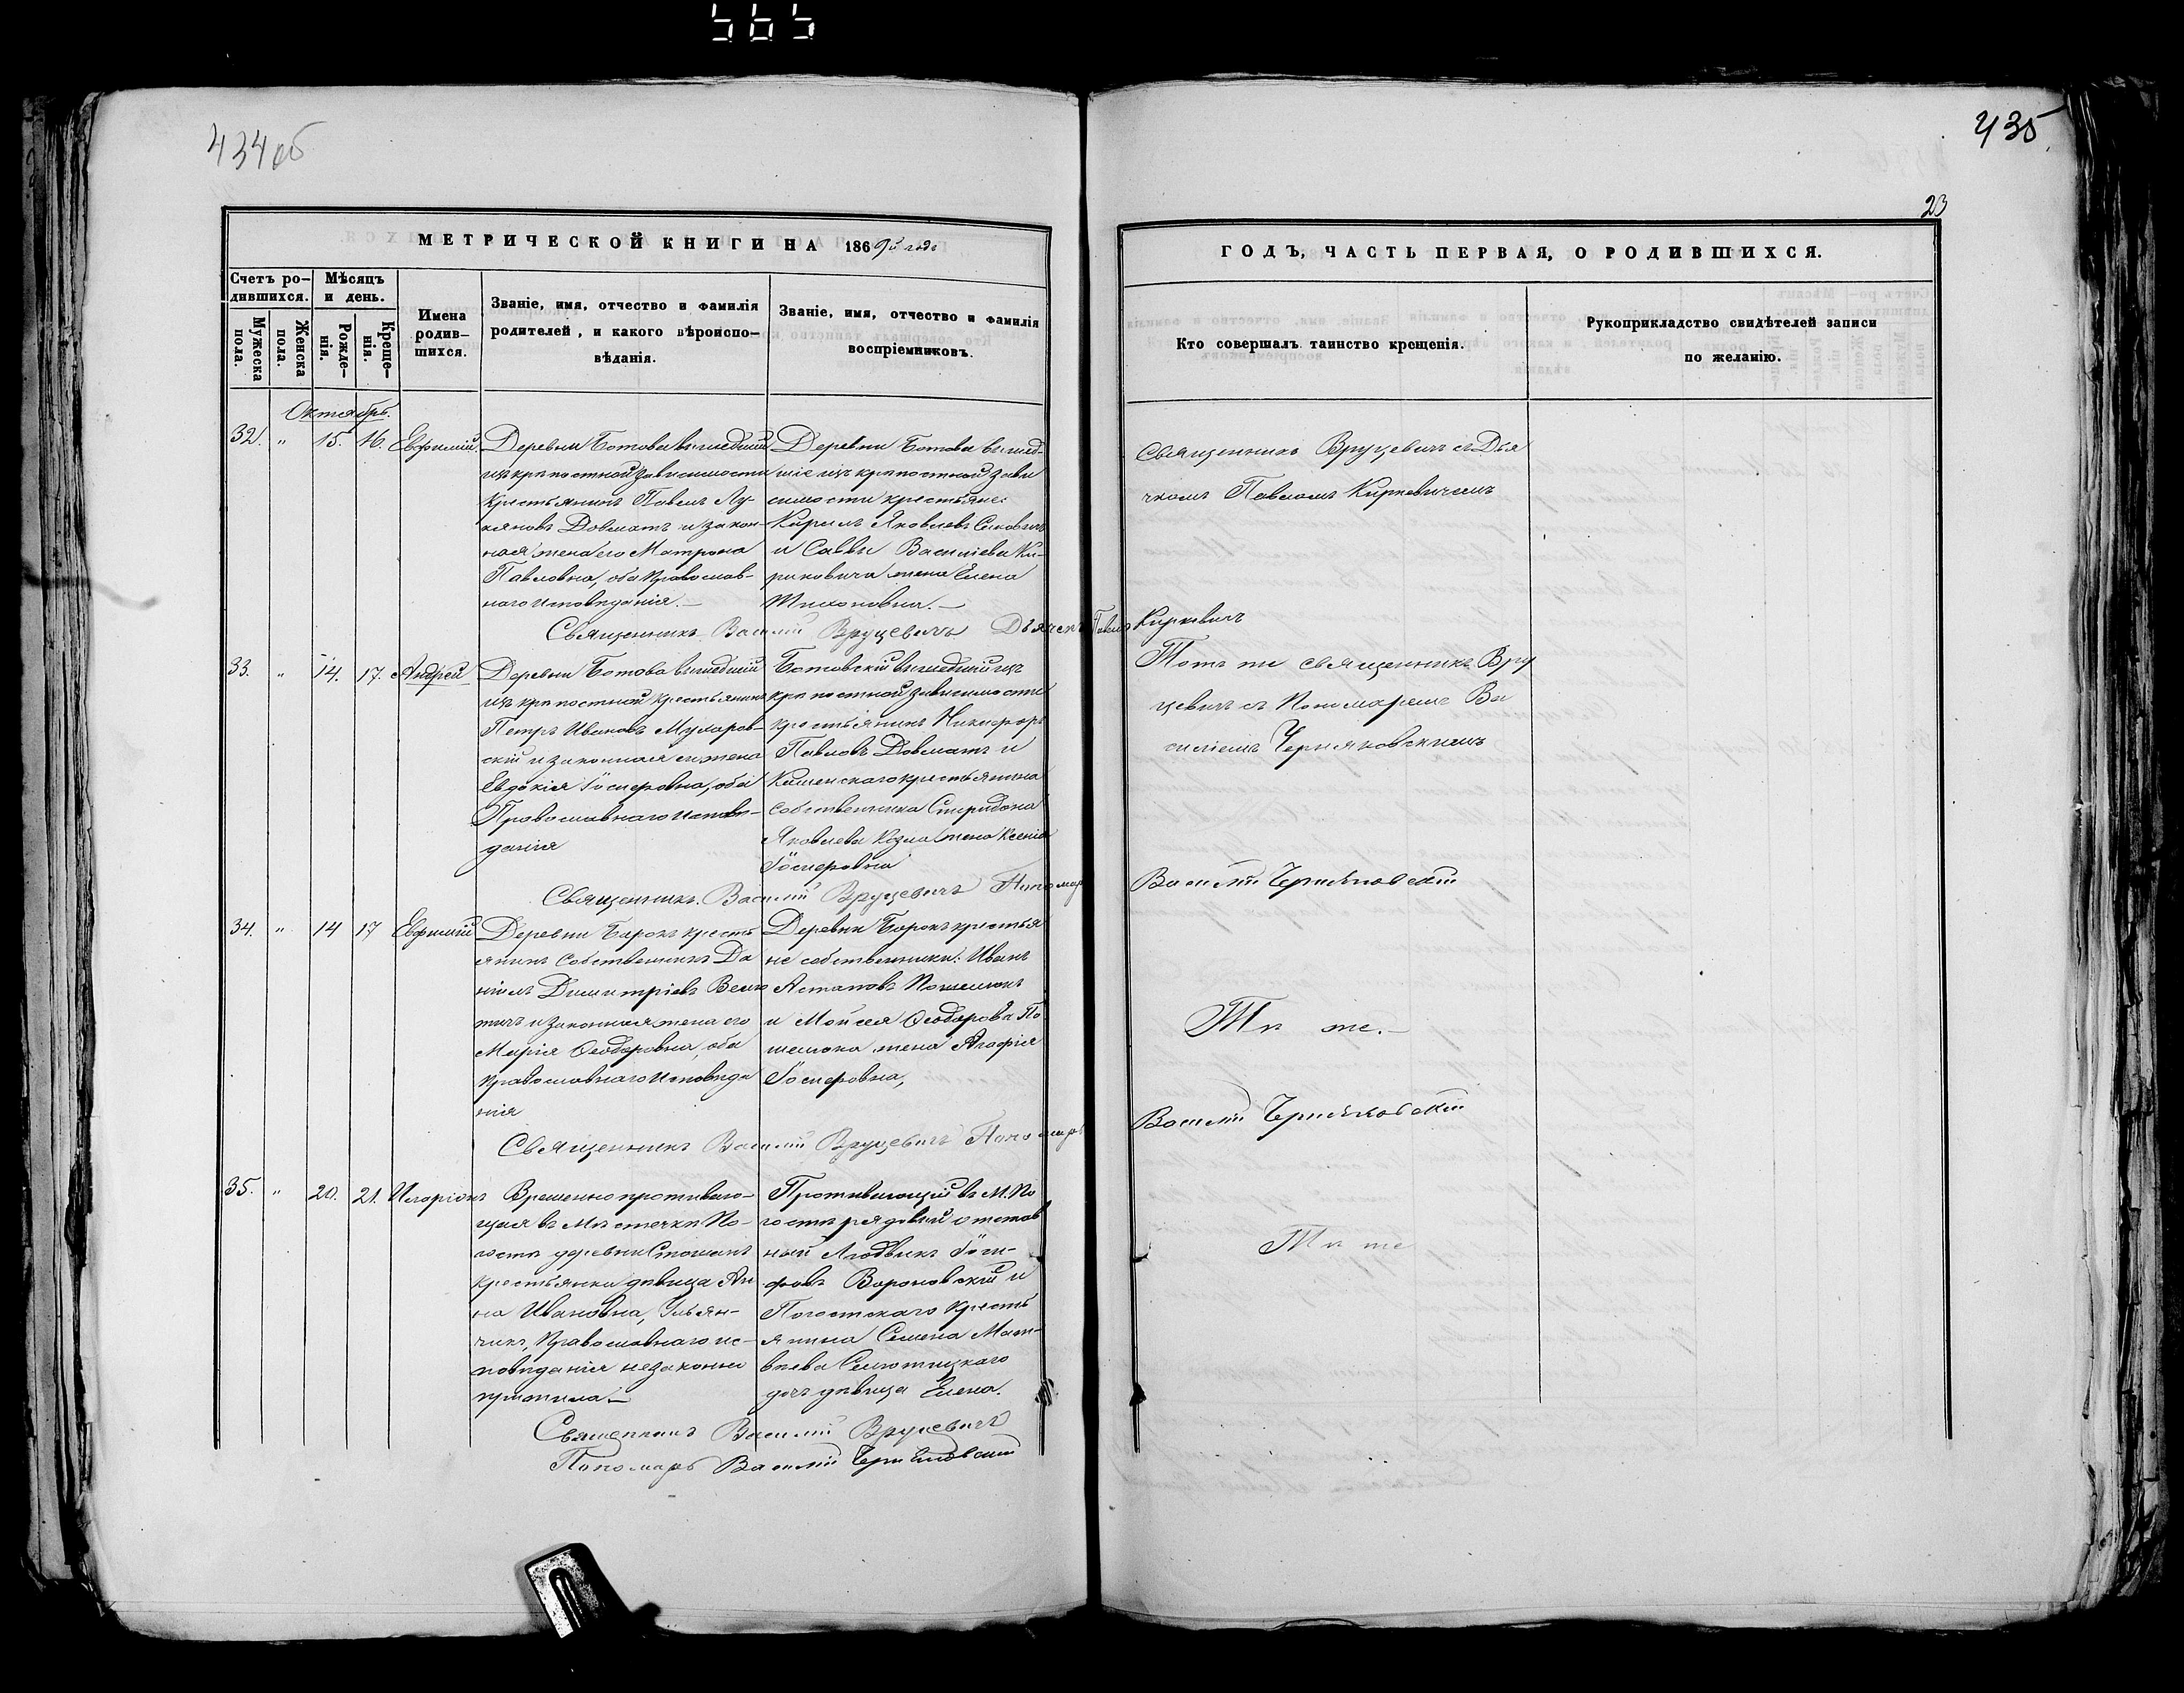 565
434 об
435
23
МЕТРИЧЕСКОЙ КНИГИ НА 1869й годъ
ГОДЪ, ЧАСТЬ ПЕРВАЯ, О РОДИВШИХСЯ.
Счетъ ро-
дившихся.
Мужеска
пола.
Женска
пола.
Мѣсяцъ
и день.
Рожде-
нія.
Креще-
нія.
Имена
родив-
шихся.
Званіе, имя, отчество и фамилія
родителей, и какого вѣроиспо-
вѣданія.
Званіе, имя, отчество и фамилія
воспріемниковъ.
Кто совершалъ таинство крещенія.
Рукоприкладство свидѣтелей записи
по желанію.
Октябрь.
32. " 15. 16. Евфимій.
Деревни Ботова вышедшій
изъ крѣпостной зависимости
крестьянинъ Павелъ Лу-
кяновъ Довматъ и закон-
ная жена его Матрона
Павловна, оба Православ-
наго исповѣданія.—
Деревни Ботова вышед-
шіе изъ крѣпостной зави
симости крестьяне:
Кирилъ Яковлевъ
и Саввы Василіева Ки-
риковича жена Елена
Тихоновна.—
Священникъ Вруцевичъ съ Дья
чкомъ Павломъ Киркевичемъ
Священникъ Василій Вруцевичъ Дьячекъ Павелъ Киркевичъ
33. " 14. 17. Андрей
Деревни Ботова вышедшій
изъ крѣпостной крестьянинъ
Петръ Ивановъ Муляров-
скій и законная его жена
Евдокія Іосифовна, оба
Православнаго исповѣ-
данія
Ботовскій вышедшій изъ
крѣпостной зависимости
крестьянинъ Никифоръ
Павловъ Довматъ и
крестьянина
собственника Спиридона
Яковлева Козла жена Ксенія
Іосифовна
Тотъ же священникъ Вру
цевичъ съ Пономаремъ Ва
силіемъ Черняковскимъ
Священникъ Василій Вруцевичъ Пономарь Василій Черняковскій
34. " 14 17 Евфимій
Деревни Борокъ кресть
янинъ собственникъ Да
ніилъ Димитріевъ
и законная жена его
Марія Ѳеодоровна, оба
Православнаго исповѣда
нія
Деревни Борокъ крестья
не собственники: Иванъ
Астаповъ
и Мойсея Ѳеодорова По
жена Агафія
Іосифовна,
Тѣ же.—
Священникъ Василій Вруцевичъ Пономарь Василій Черняковскій
35. " 20. 21. Иларіонъ
Временно проживаю-
щая въ мѣстечкѣ По-
гостѣ деревни
крестьянка дѣвица Ан
на Ивановна, Ульян-
чикъ, Православнаго ис-
повѣданія незаконно
прижила.—
Проживающій въ М. По
гостѣ рядовый отстав
ный Людвикъ Іоси-
фовъ Вороновскій и
Погостскаго кресть
янина Семена Мат-
вѣева
дочь дѣвица Елена.
Тѣ же
Священникъ Василій Вруцевичъ
Пономарь Василій Черняковскій